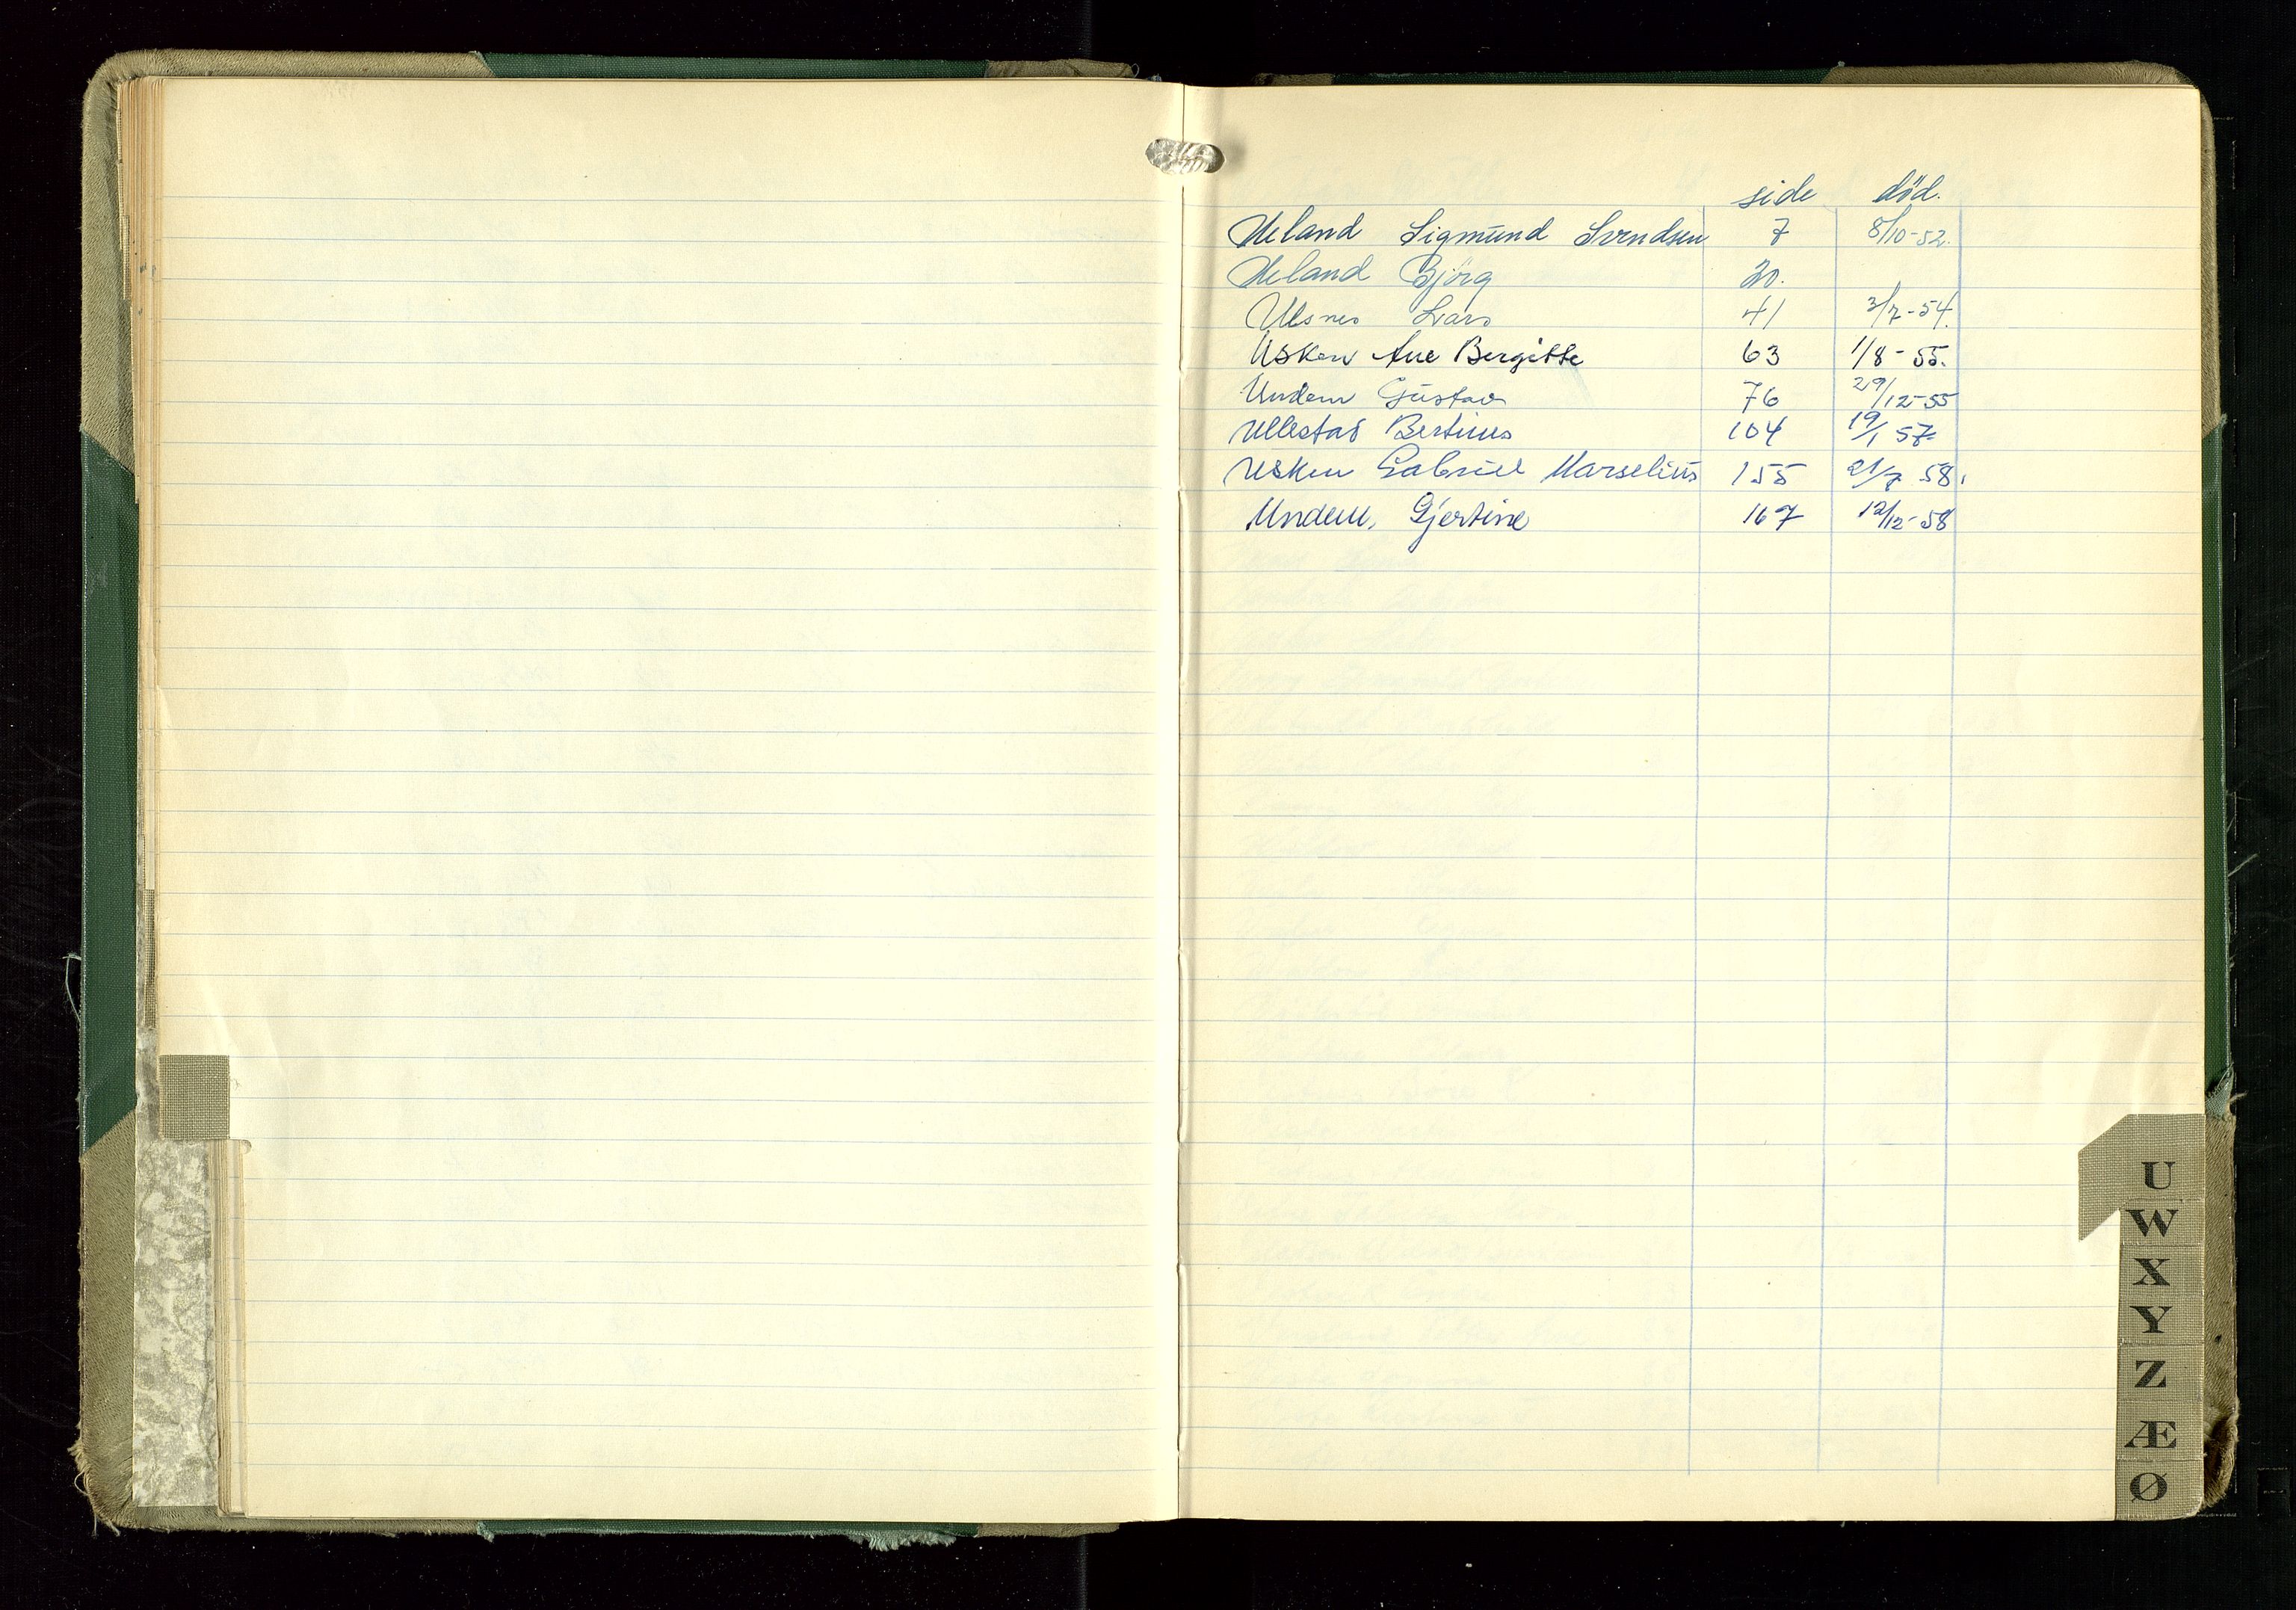 side død.
Ueland Sigmund Svendsen 7 8/10-52.
Ueland Bjørg 20.
Ulsnes Lars 41 3/7-54.
Usken Ane Bergitte 63 1/8-55.
Undem Gustav 76 29/12-55
Ullestad Bertinus 104 19/1 57-
Usken Gabriel Marselius 155 21/7 58.
Undem, Gjertine 167 12/12-58
U
W
X
Y
Z
Æ
Ø